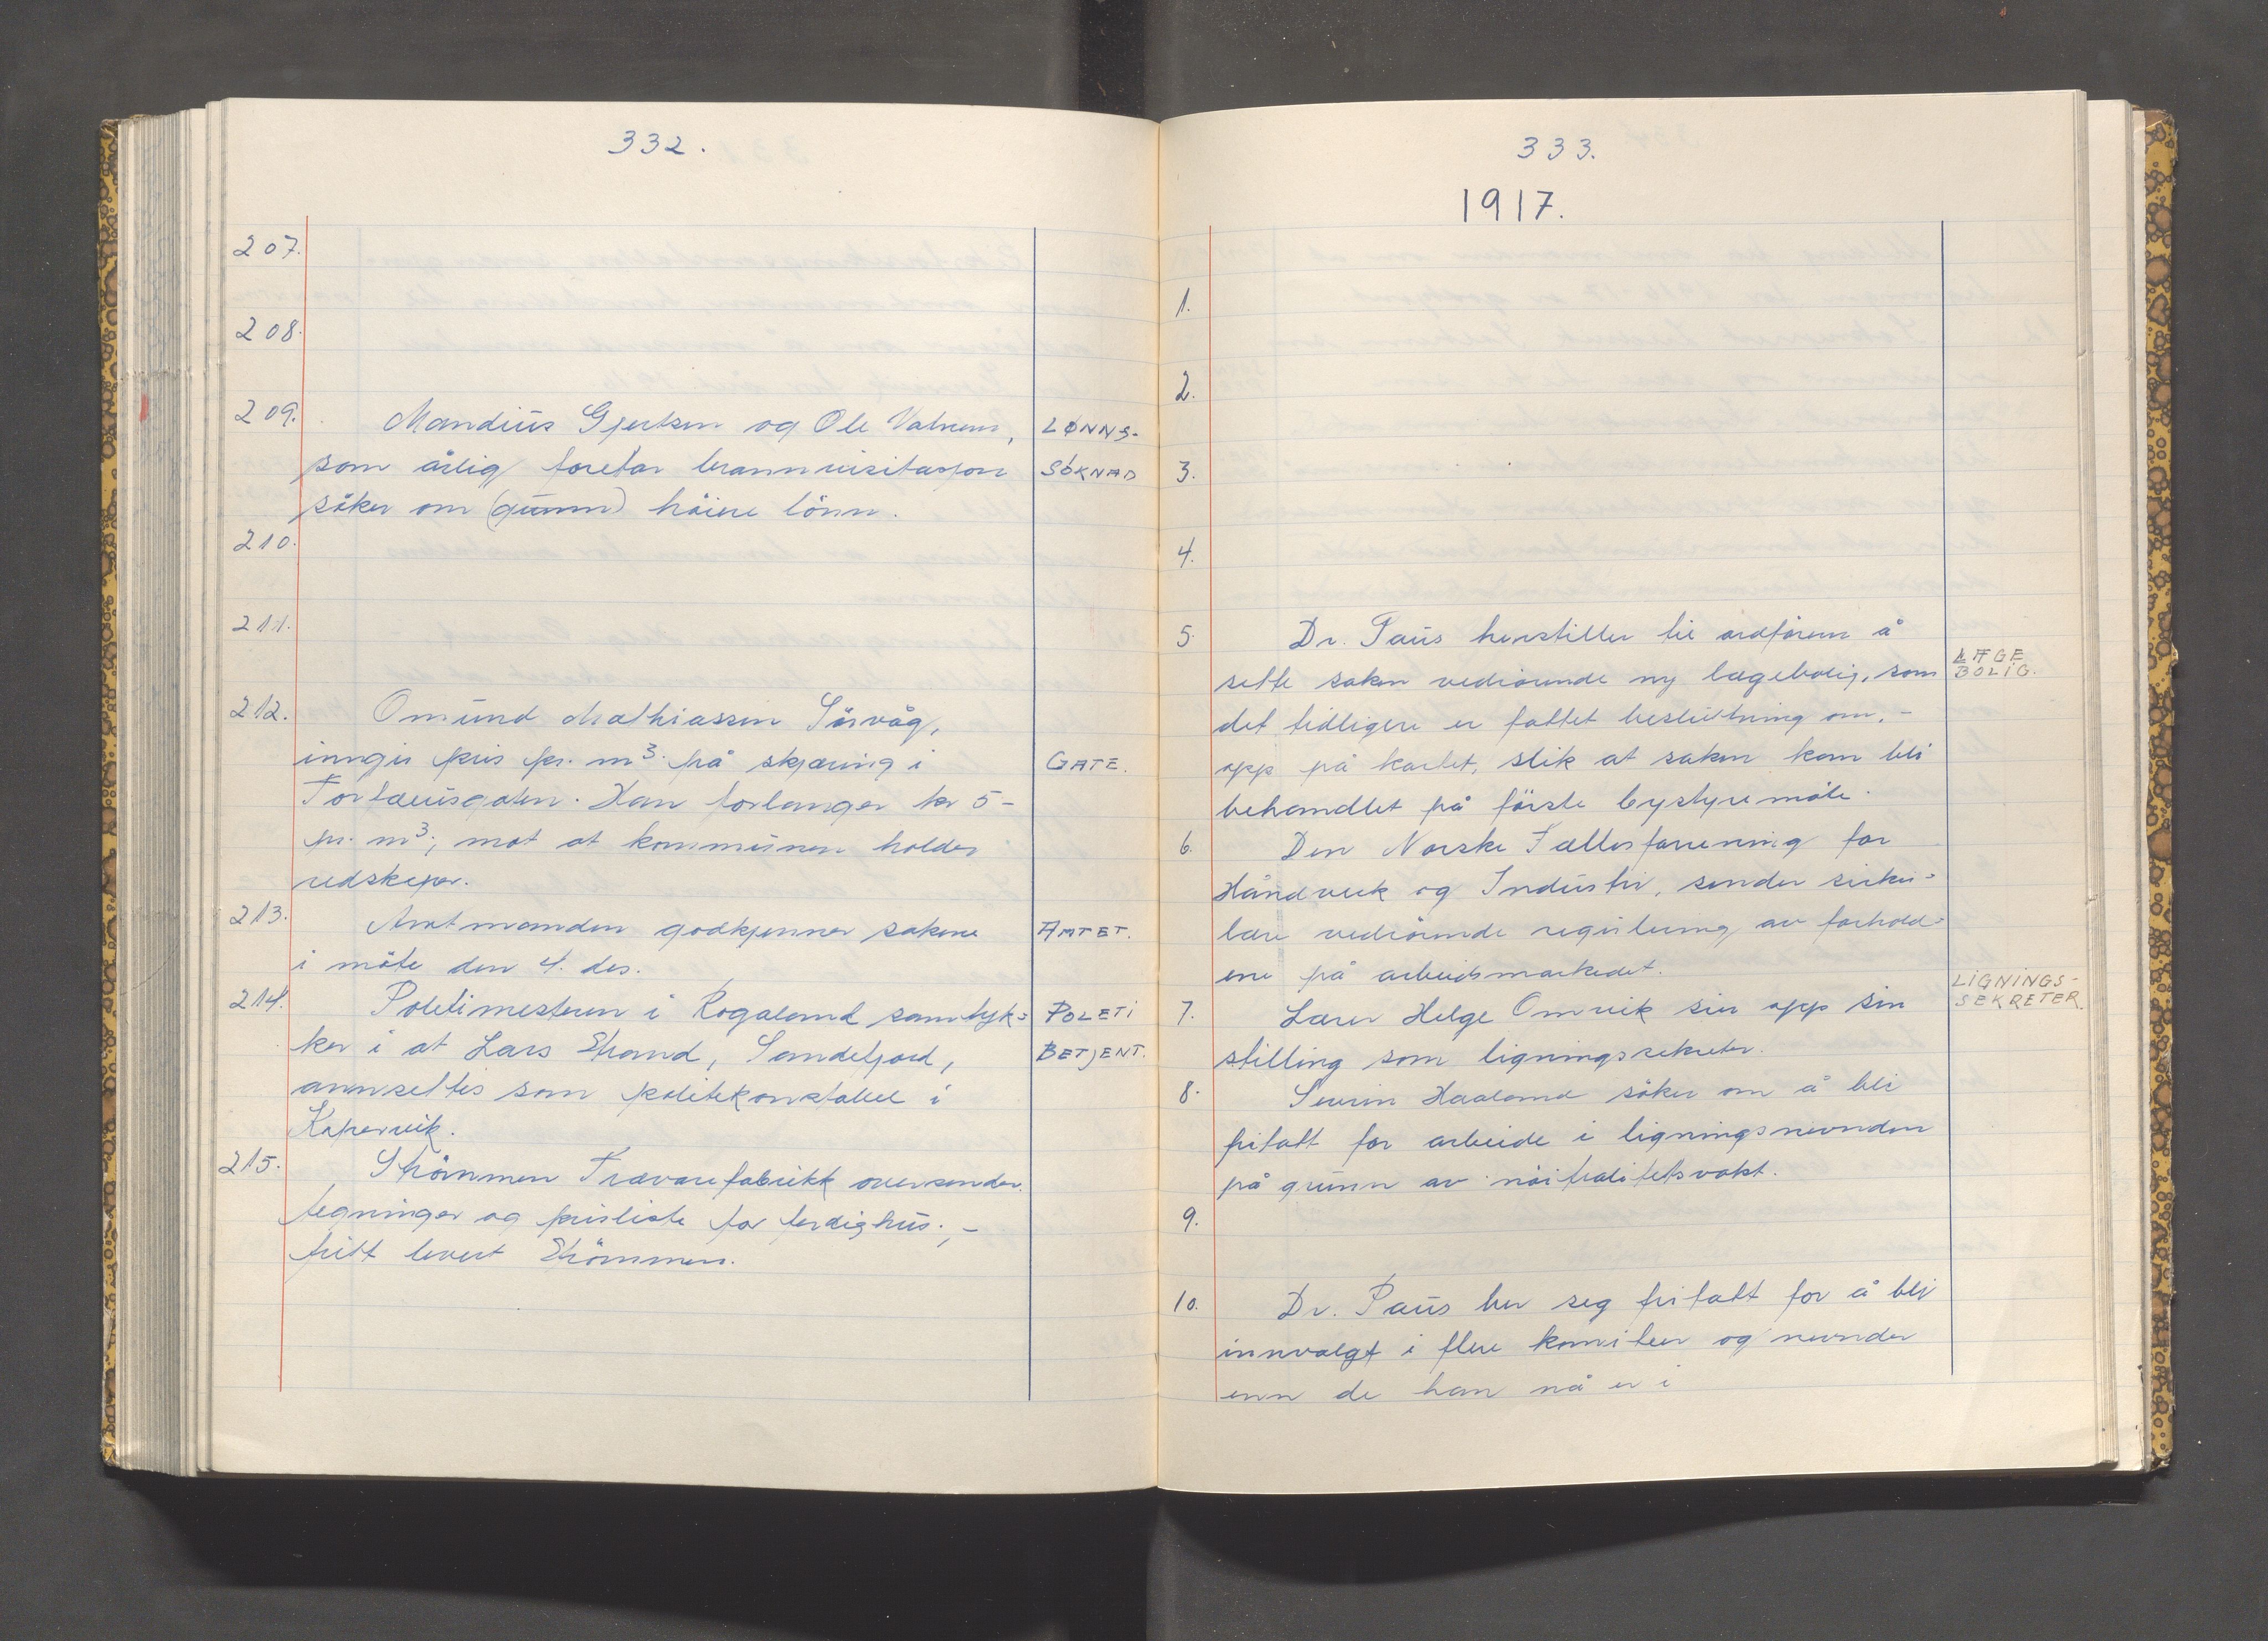 332.
207.
208.
209. Mandius Gjertsen og Ole Valven, LØNNS-
som årlig foretar brannvisitasjon SÖKNAD
söker om (gunn) höiere lönn.
210.
211.
212. Omund Mathiassen Sörvåg,
inngir pris pr. m³. på skjæring i GATE.
Torfæusgaten. Han forlanger kr 5-
pr. m³; mot at kommunen holder
redskaper.
213. Amtmanden godkjenner sakene AMTET.
i möte den 4. des.
214. Politimesteren i Rogaland samtyk= POLETI
ker i at Lars Strand, Sandefjord, BETJENT.
annsettes som politikonstabel i
Kopervik.
215. Strömmen Trævarefabrikk oversender
tegninger og prisliste for ferdighus.,-
fritt levert Strömmen.
333.
1917.
1.
2.
3.
4.
5. Dr. Paus henstiller til ordföreren å
sette saken vedrörende ny lægebolig, som LÆGE
BOLIG.
det tidligere er fattet beslutning om,-
opp på kartet, slik at saken kan bli
behandlet på förste bystyremöte.
6. Den Norske Fællesforrening for
Håndverk og Industri, sender sirku=
lære vedrörende regulering av forhold=
ene på arbeidsmarkedet.
7. Lærer Helge Omvik sier opp sin LIGNINGS-
SEKRETER.
stilling som ligningssekretær.
8. Severin Haaland söker om å bli
fritatt for arbeide i ligningsnevnden
på grunn av nöitralitetsvakt.
9.
10. Dr. Paus ber seg fritatt for å bli
innvalgt i flere komiteer og nevnder
enn de han nå er i